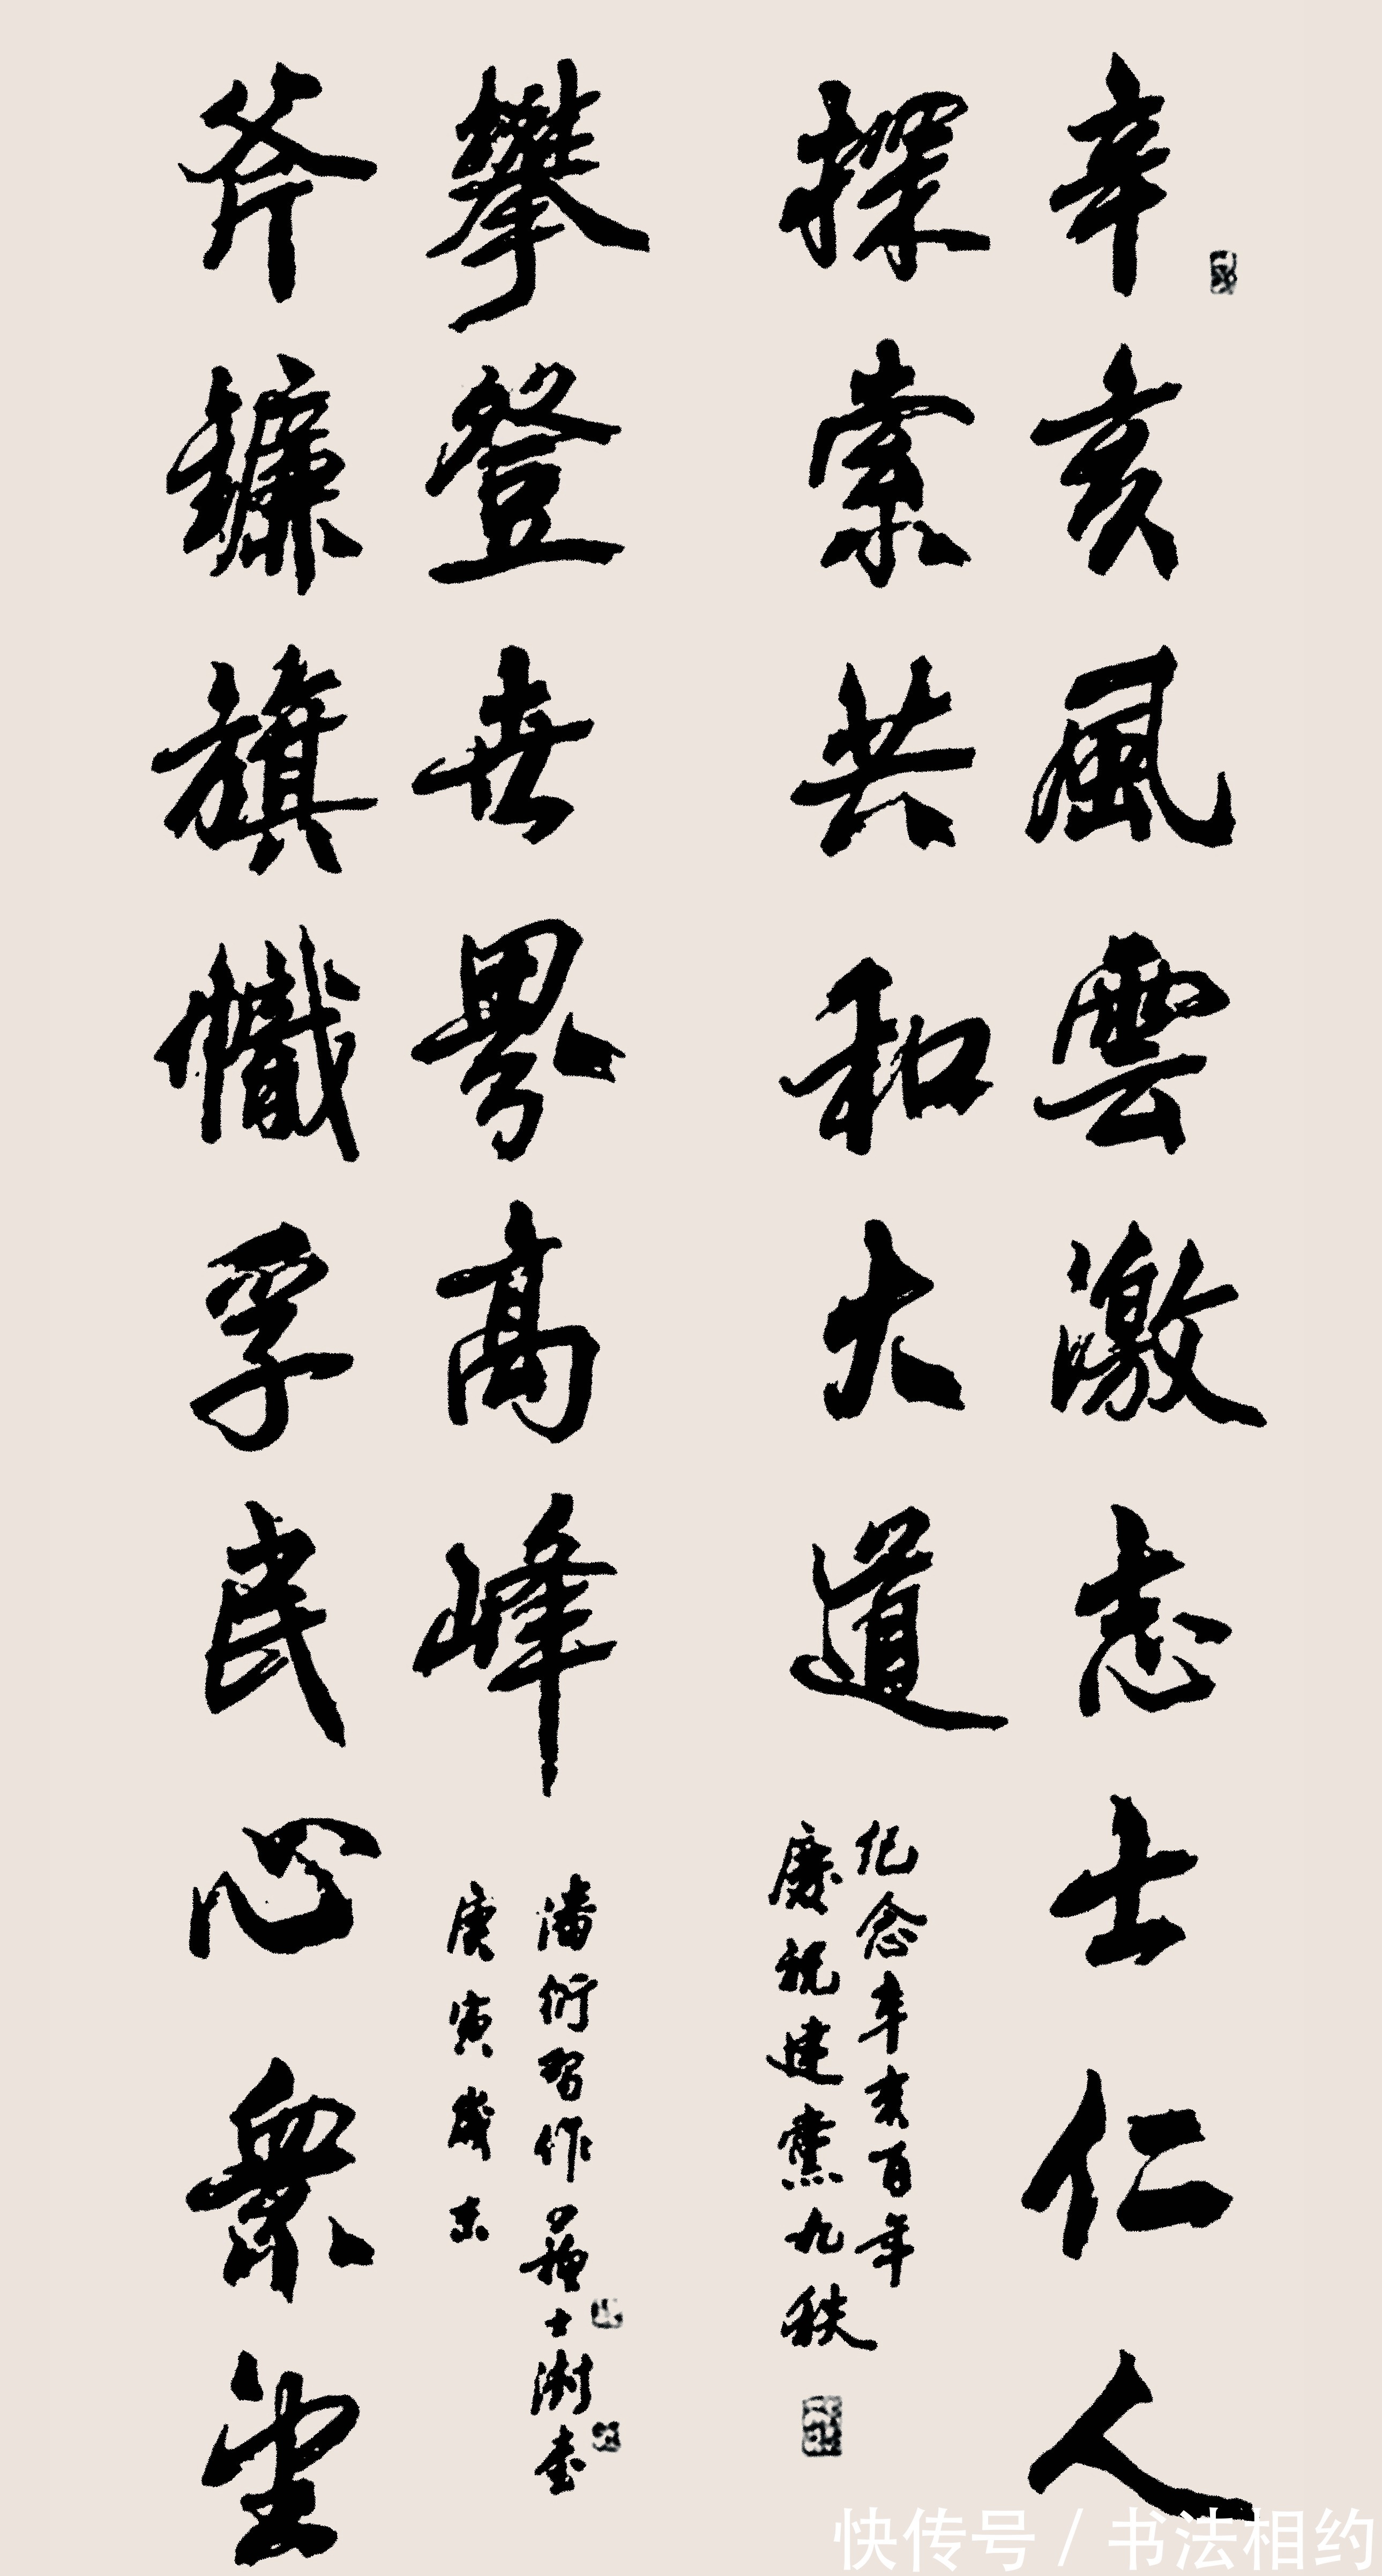 辛亥風雲激志士仁人
探索共和大道
纪念辛亥百年
慶祝建黨九秩
攀登世界高峰
潘衍習作 蘇士澍書
庚寅歲末
斧鐮旗幟孚民心衆望
快传号 / 书法相约